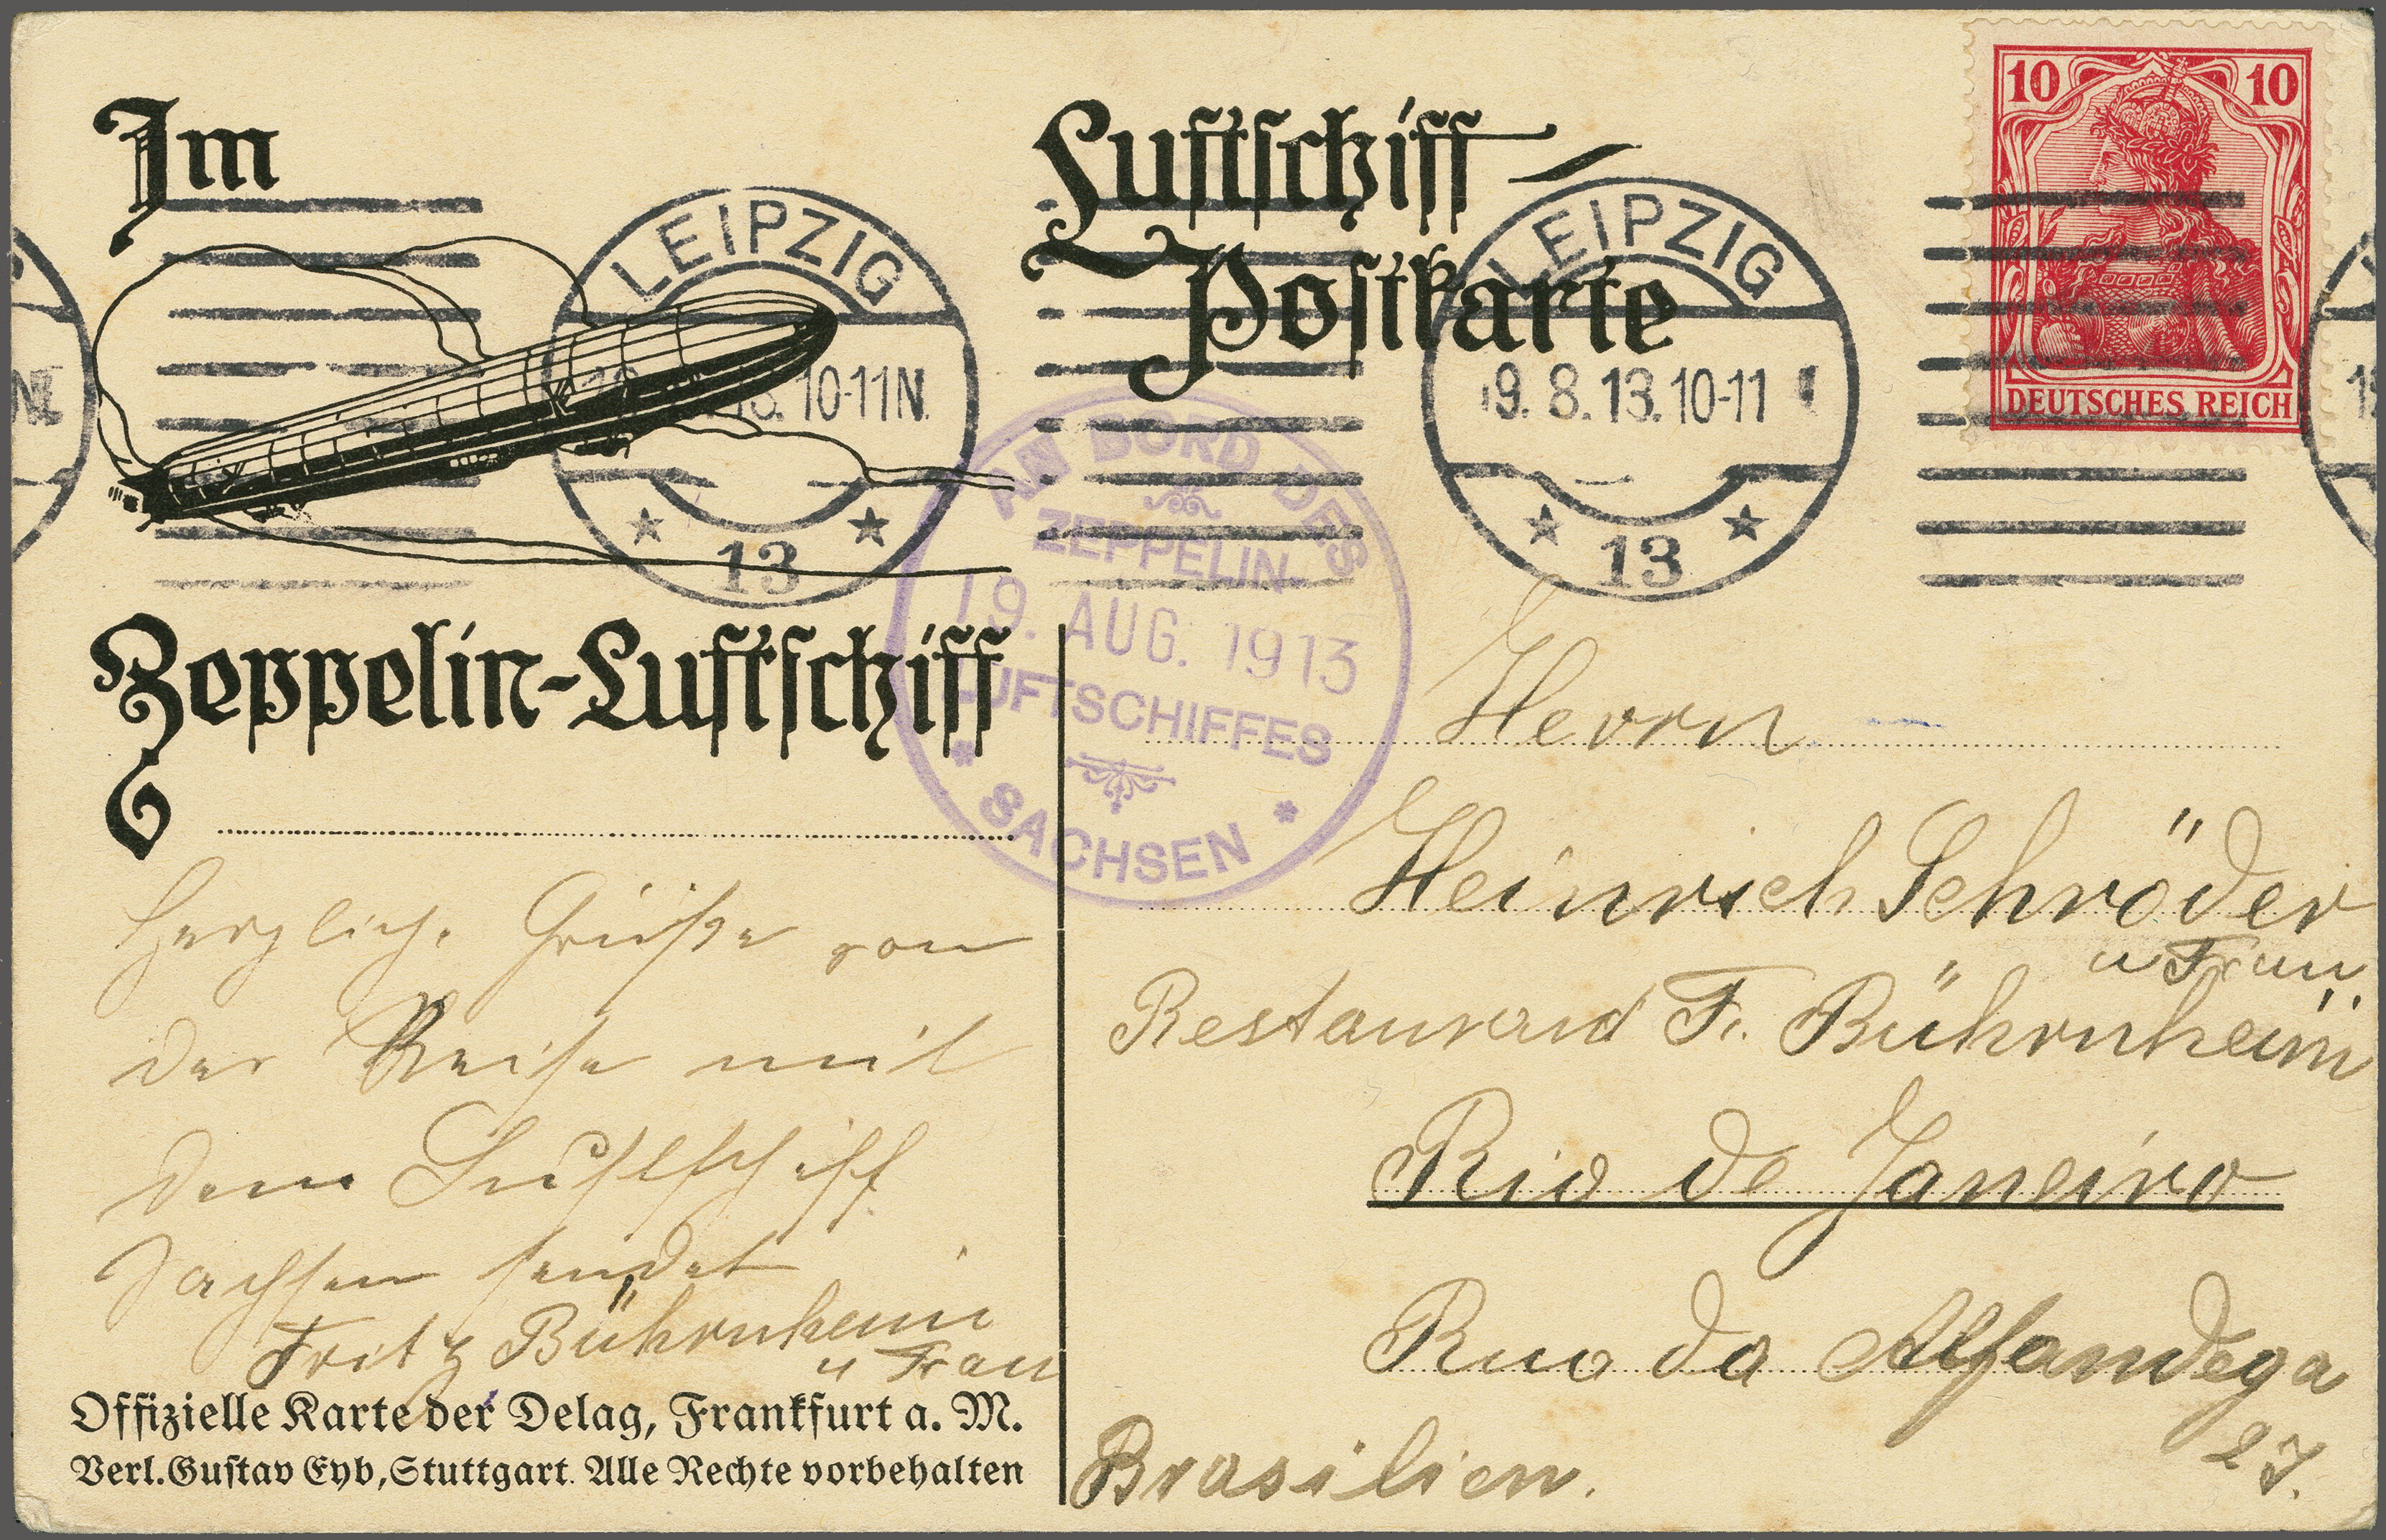 Im
Luftschiff-
Postkarte
10 10
DEUTSCHES REICH
LEIPZIG
10-11N.
13
LEIPZIG
19.8.13.10-11
13
AN BORD DES
ZEPPELIN-
19. AUG. 1913
LUFTSCHIFFES
SACHSEN
Zeppelin-Luftschiff
Herzliche Grüße von
der Reise mit
dem Luftschiff
Sachsen sendet
Fritz Bührnheim
u Frau
Offizielle Karte der Delag, Frankfurt a. M.
Verl. Gustav Eyb, Stuttgart. Alle Rechte vorbehalten
Herrn
Heinrich Schröder
u Frau
Restaurand F. Bührnheim
Rio de Janeiro
Rua da Alfandega
27.
Brasilien.